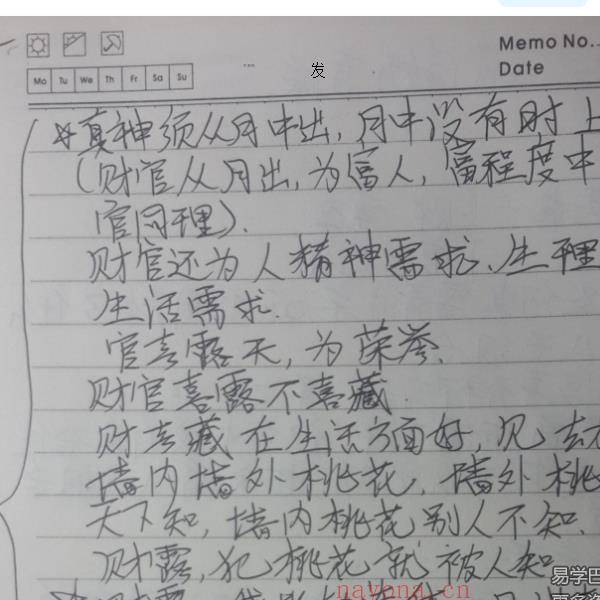 Memo No.
Mo Tu We Th Fr Sa Su
发
Date
☆真神须从月中出，月中没有时上
（财官从月出，为富人，富程度中
官同理）.
财官还为人精神需求、生理
生活需求.
官喜露天，为荣誉.
财官喜露不喜藏
财喜藏在生活方面好，见
墙内墙外桃花，墙外桃
天下知，墙内桃花别人不知.
财露，犯桃花就被人知
易学巴
nayona.cn